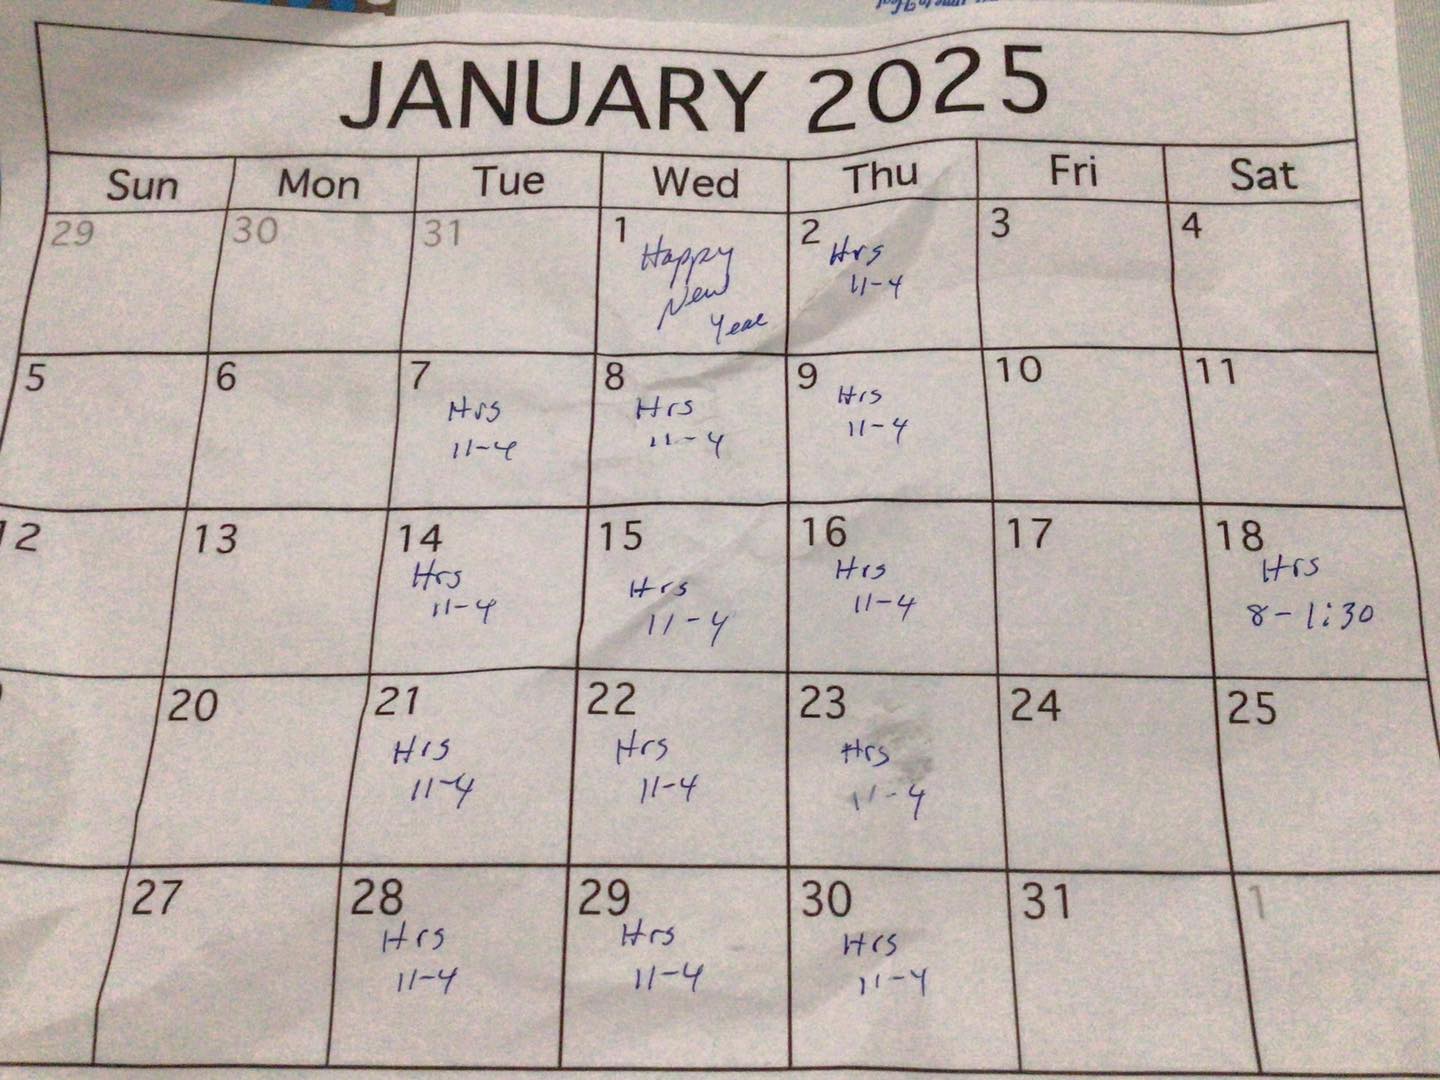 JANUARY 2025
Sun Mon Tue Wed Thu Fri Sat
29 30 31 1 2 3 4
Happy
New
Year
Hrs
11-4
5 6 7 8 9 10 11
Hrs Hrs Hrs
11-4 11-4 11-4
12 13 14 15 16 17 18
Hrs Hrs Hrs Hrs
11-4 11-4 11-4 8-1:30
20 21 22 23 24 25
Hrs Hrs Hrs
11-4 11-4 11-4
27 28 29 30 31 1
Hrs Hrs Hrs
11-4 11-4 11-4